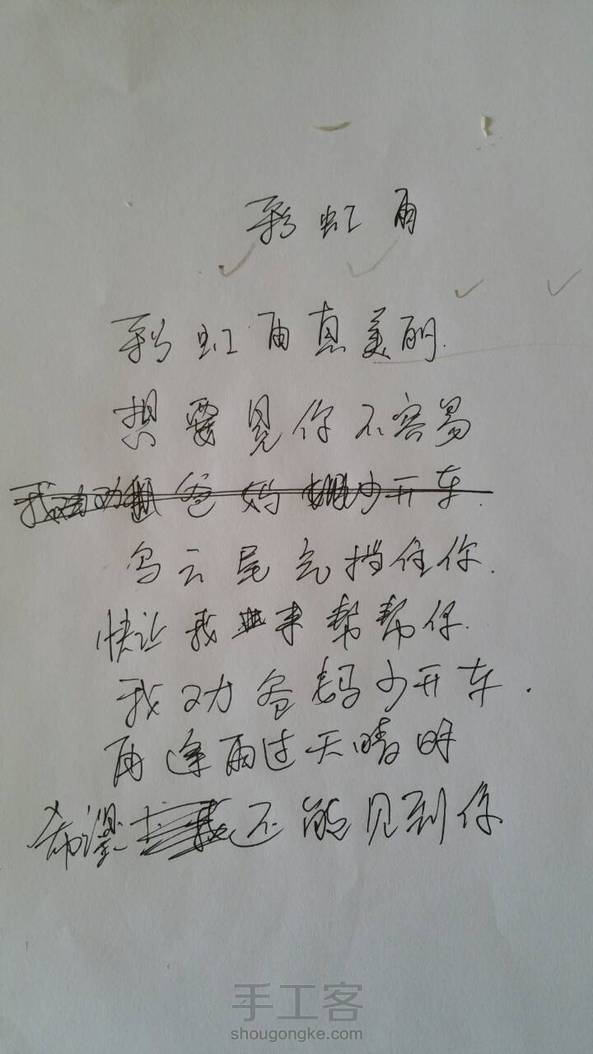 彩虹雨
彩虹雨真美丽.
想要见你不容易
我劝爸妈少开车.
乌云尾气挡住你.
快让我来帮帮你.
我劝爸妈少开车.
再逢雨过天晴时
希望还能见到你
手工客
shougongke.com